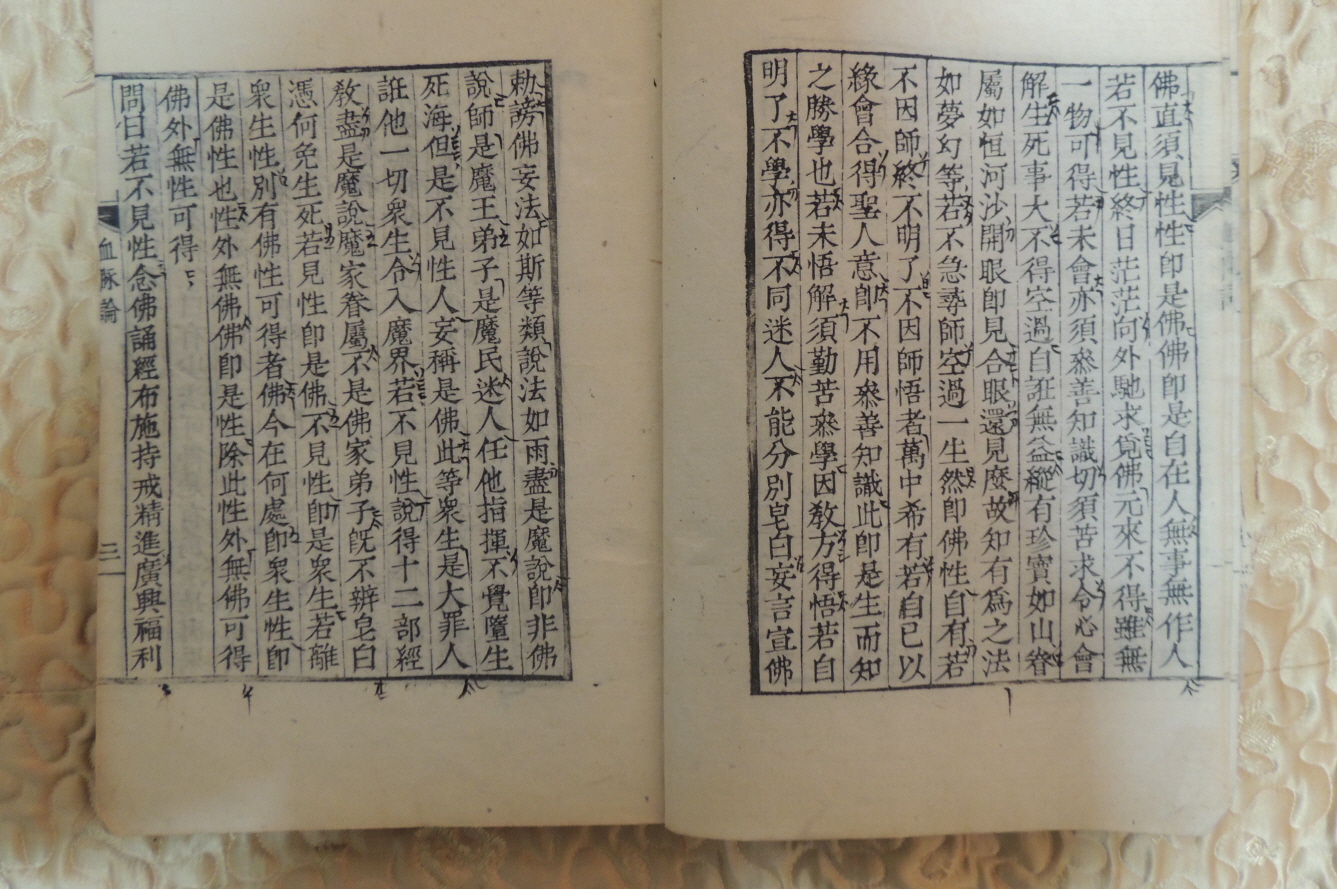 佛直須見性性卽是佛佛卽是自在人無事無作人
若不見性終日茫茫向外馳求覓佛元來不得雖無
一物可得若未會亦須叅善知識切須苦求令心會
解生死事大不得空過自誑無益縱有珍寶如山眷
屬如恒河沙開眼卽見合眼還見麽故知有爲之法
如夢幻等若不急尋師空過一生然卽佛性自有若
不因師終不明了不因師悟者萬中希有若自己以
緣會合得聖人意卽不用叅善知識此卽是生而知
之勝學也若未悟解須勤苦叅學因敎方得悟若自
明了不學亦得不同迷人不能分別皂白妄言宣佛
勑謗佛妄法如斯等類說法如雨盡是魔說卽非佛
說師是魔王弟子是魔民迷人任他指揮不覺墮生
死海但是不見性人妄稱是佛此等衆生是大罪人
誑他一切衆生令入魔界若不見性說得十二部經
敎盡是魔說魔家眷屬不是佛家弟子旣不辨皂白
憑何免生死若見性卽是佛不見性卽是衆生若離
衆生性別有佛性可得者佛今在何處卽衆生性卽
是佛性也性外無佛佛卽是性除此性外無佛可得
佛外無性可得
問曰若不見性念佛誦經布施持戒精進廣興福利
血脉論